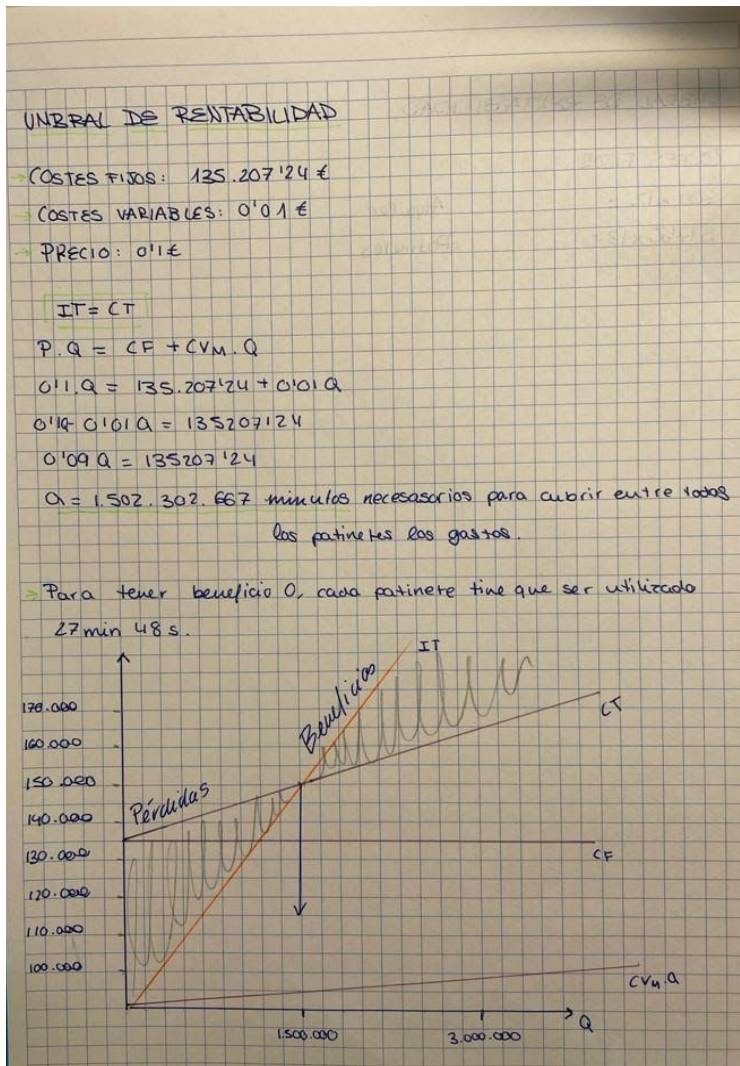 UNBRAL DE RENTABILIDAD
→ COSTES FIJOS: 135.207'24 €
→ COSTES VARIABLES: 0'01 €
→ PRECIO: 0'1 €
IT = CT
P.Q = CF + CVM.Q
0'1.Q = 135.207'24 + 0'01Q
0'1Q - 0'01Q = 135207'24
0'09 Q = 135207'24
Q = 1.502.302.667 minutos necesasorios para cubrir entre todos
los patinetes los gastos.
→ Para tener beneficio 0, cada patinete tine que ser utilizado
27 min 48 s.
IT
Beneficios
170.000
CT
160.000
150.000
Pérdidas
140.000
130.000
CF
120.000
110.000
100.000
CVM.Q
Q
1.500.000
3.000.000